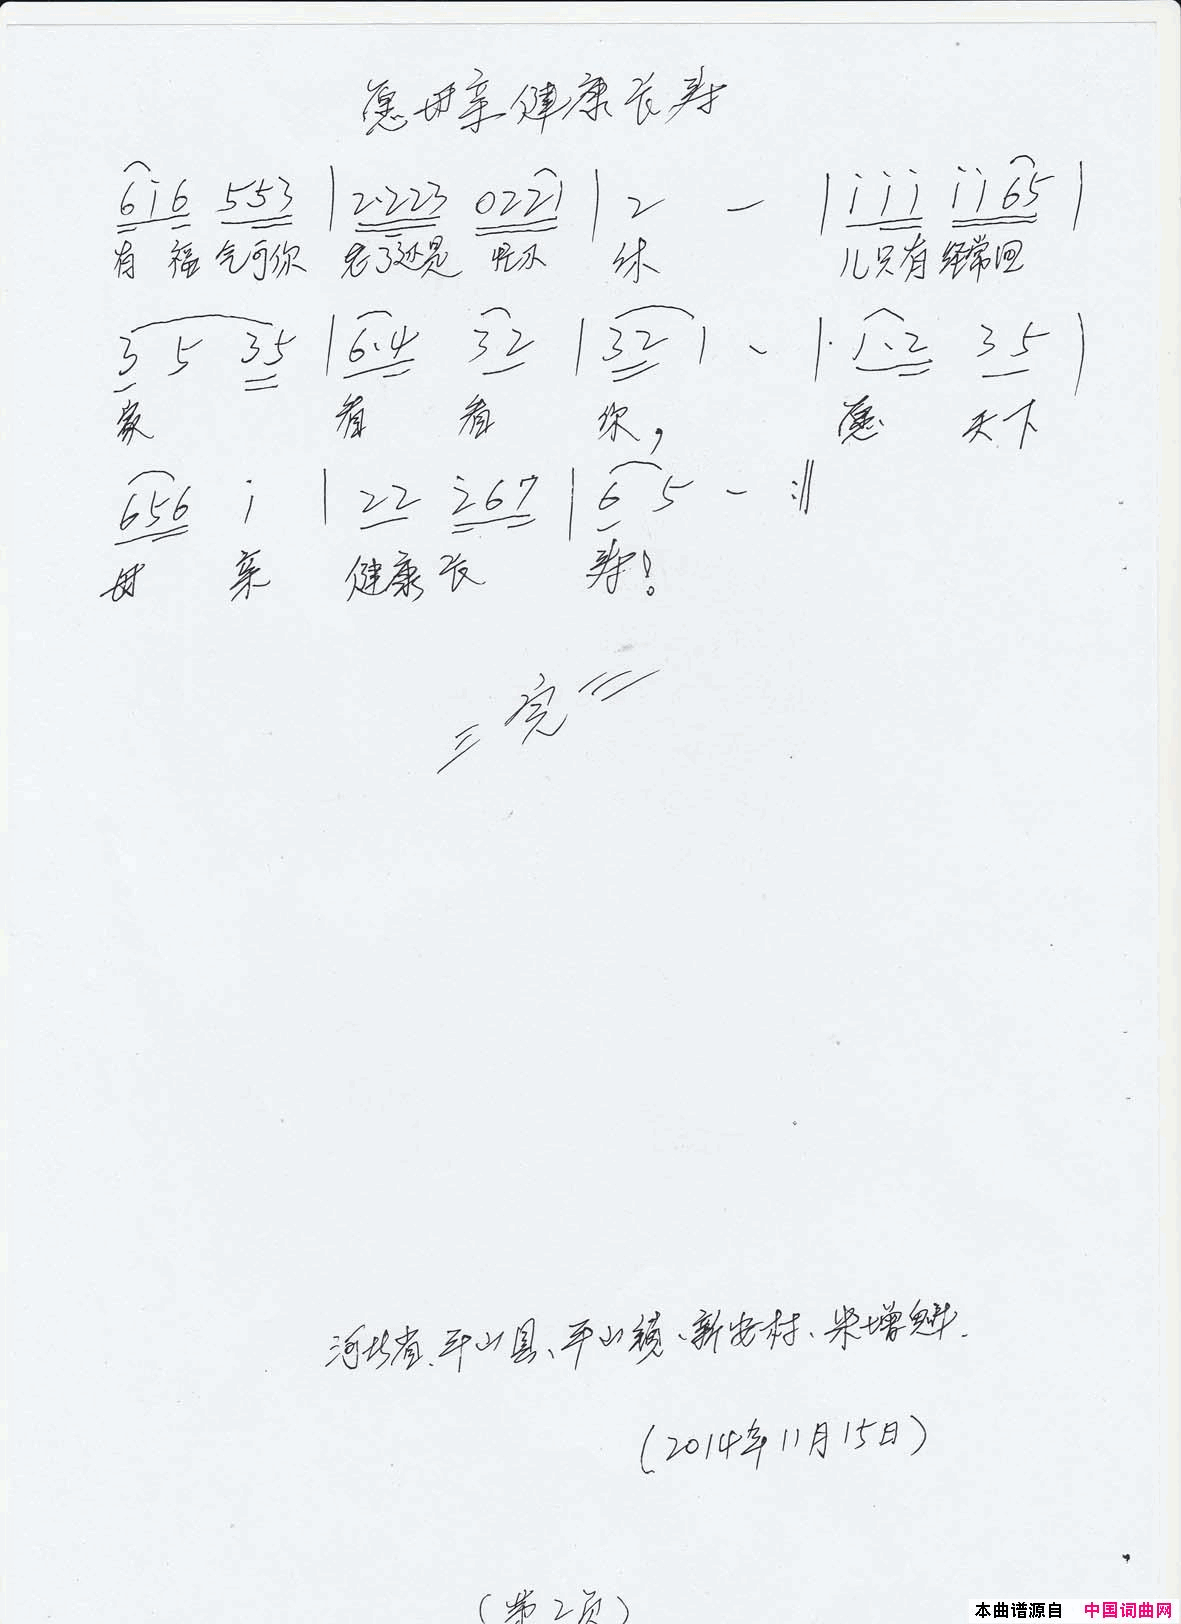 愿母亲健康长寿
6 i 6 5 5 3 | 2·2 2 3 0 2 2 1 | 2 - | i i i i i 6 5 |
有 福 气可你 老了还是 忙不 休 儿只有 经常回
3 5 3 5 | 6·4 3 2 | 3 2 1 - | 1·2 3 5 |
家 看 看 你, 愿 天下
6 5 6 i | 2 2 i 6 7 | 6 5 - :‖
母 亲 健康 长 寿!
完
河北省、平山县、平山镇、新安村、柴增魁.
(2014年11月15日)
(第2页)
本曲谱源自 中国词曲网